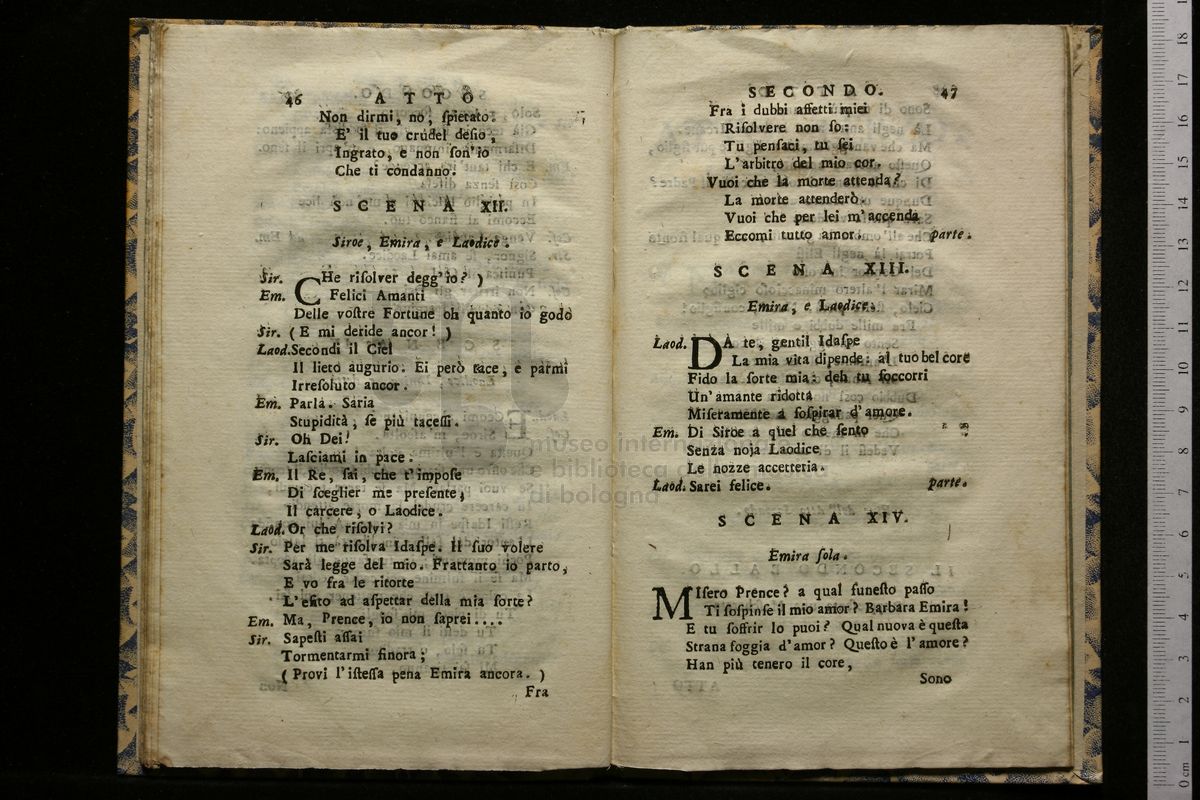 46 ATTO
Non dirmi, no, ſpietato:
E' il tuo crudel deſio,
Ingrato, e non ſon'io
Che ti condannò.
SCENA XII.
Siroe, Emira, e Laodice.
Sir. CHe riſolver degg'io? )
Em. Felici Amanti
Delle voſtre Fortune oh quanto io godo
Sir. ( E mi deride ancor! )
Laod. Secondi il Ciel
Il lieto augurio. Ei però tace, e parmi
Irreſoluto ancor.
Em. Parla. Saria
Stupidità, ſe più taceſſi.
Sir. Oh Dei!
Laſciami in pace.
Em. Il Re, ſai, che t'impoſe
Di ſceglier me preſente,
Il carcere, o Laodice.
Laod. Or che riſolvi?
Sir. Per me riſolva Idaſpe. Il ſuo volere
Sarà legge del mio. Frattanto io parto,
E vo fra le ritorte
L'eſito ad aſpettar della mia ſorte?
Em. Ma, Prence, io non ſaprei....
Sir. Sapeſti aſſai
Tormentarmi finora;
( Provi l'iſteſſa pena Emira ancora. )
Fra
SECONDO. 47
Fra i dubbi affetti miei
Riſolvere non ſo:
Tu penſaci, tu ſei
L'arbitro del mio cor.
Vuoi che la morte attenda?
La morte attenderò.
Vuoi che per lei m'accenda
Eccomi tutto amor. parte.
SCENA XIII.
Emira, e Laodice.
Laod. DA te, gentil Idaſpe
La mia vita dipende: al tuo bel core
Fido la ſorte mia: deh tu ſoccorri
Un'amante ridotta
Miſeramente a ſoſpirar d'amore.
Em. Di Siroe a quel che ſento
Senza noja Laodice
Le nozze accetteria.
Laod. Sarei felice. parte.
SCENA XIV.
Emira ſola.
MIſero Prence? a qual funeſto paſſo
Ti ſoſpinſe il mio amor? Barbara Emira!
E tu ſoffrir lo puoi? Qual nuova è queſta
Strana foggia d'amor? Queſto è l'amore?
Han più tenero il core,
Sono
museo internazionale
e biblioteca della musica
di bologna